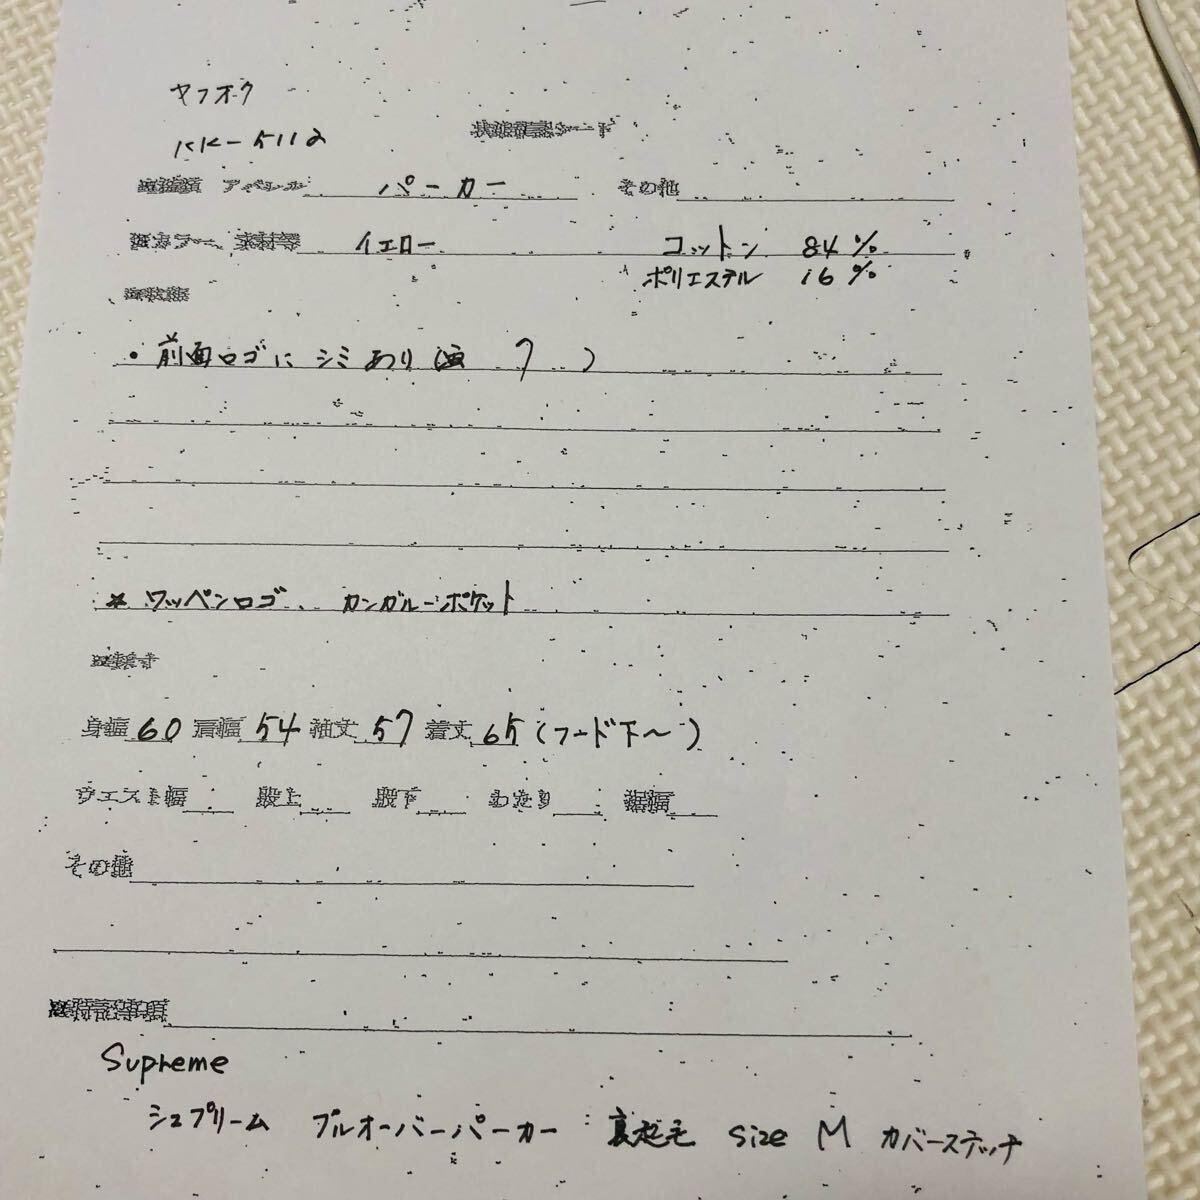 ヤフオク
KK-5112
状態確認シート
アパレル パーカー その他
カラー、素材等 イエロー コットン 84%
ポリエステル 16%
状態
・前面ロゴにシミあり(画 7 )
* ワッペンロゴ、 カンガルーポケット
身幅60 肩幅54 袖丈57 着丈65(フード下〜)
ウエスト幅 股上 股下 わたり 裾幅
その他
特記事項
Supreme
シュプリーム プルオーバーパーカー 裏起毛 size M カバーステッチ